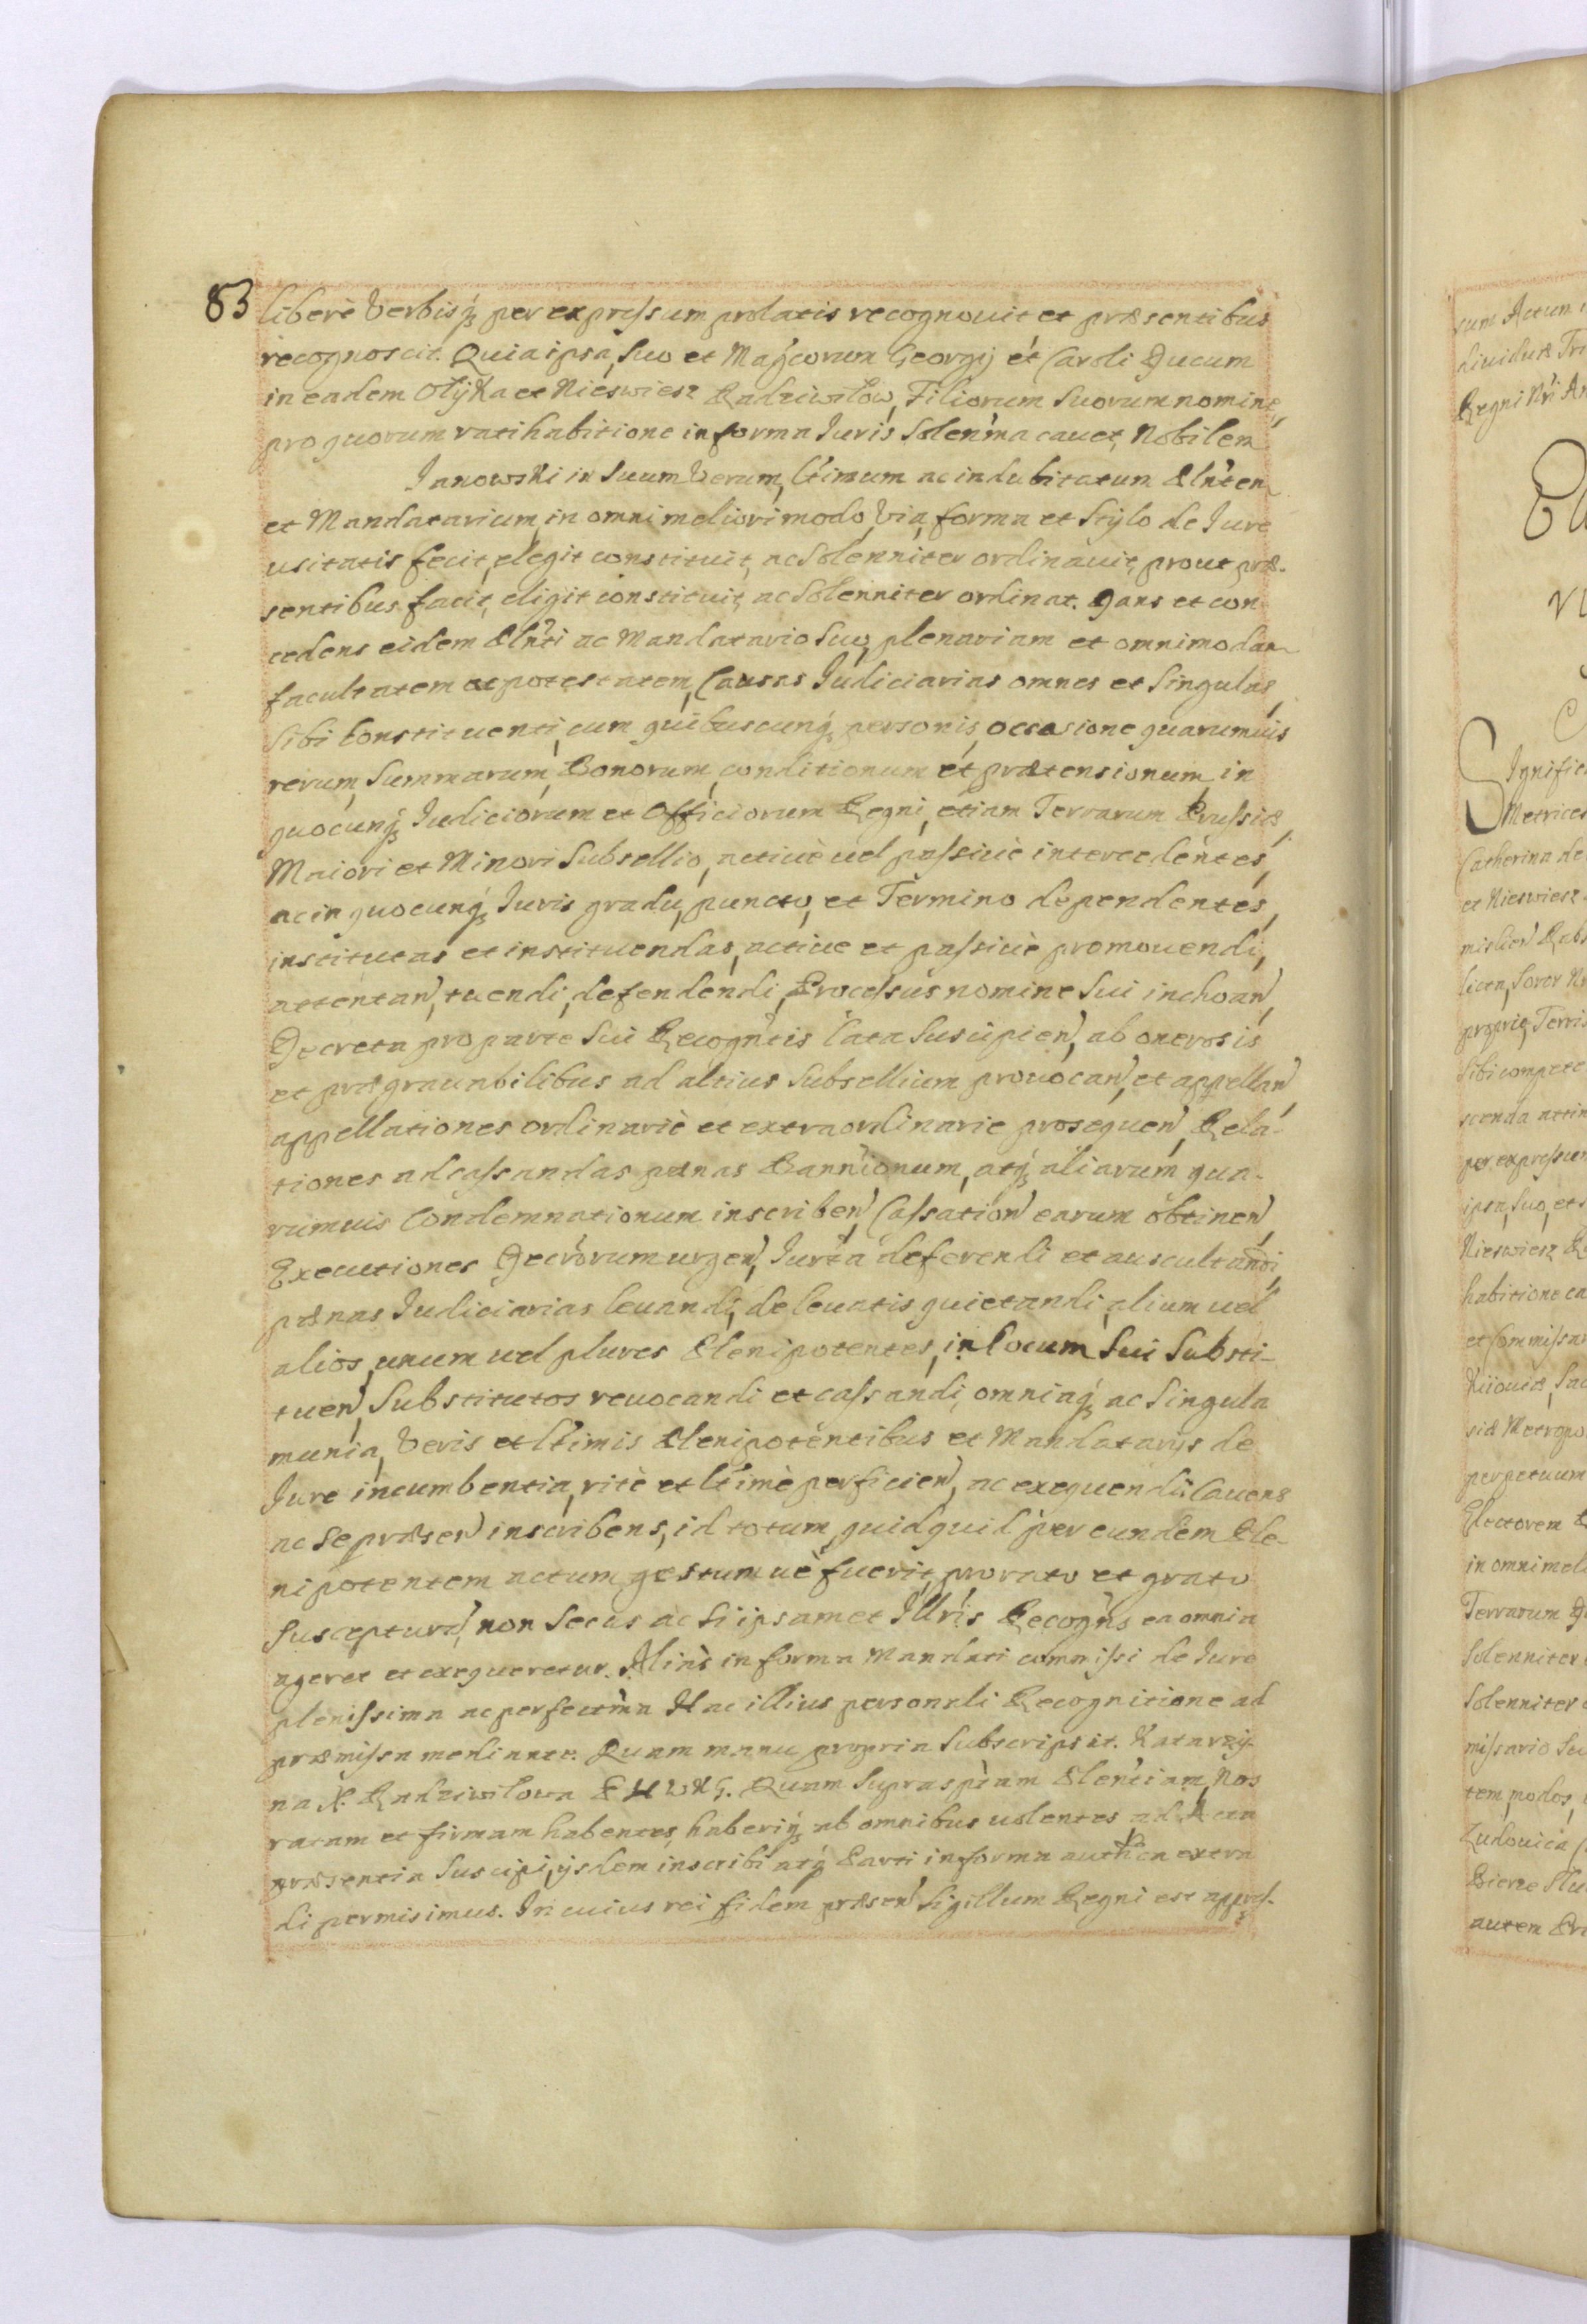 83
liberè Verbisq; per expressum prolatis recognouit et præsentibus
recognoscit. Quia ipsa, suo et Magcorum Georgij et Caroli Ducum
in eadem Ołyka et Nieswiesz Radziwiłow, Filiorum Suorum nomine,
pro quorum ratihabitione in forma Iuris Solenma cauet, Nobilem
Janowski in Suum Verum, Ltimum ac indubitatum Plnten
et Mandatarium, in omni meliori modo, Via, forma et Stylo de Jure
usitatis fecit, elegit constituit, ac Solenniter ordinauit, prout præ-
sentibus facit, eligit constituit, ac Solenniter ordinat. Dans et con-
cedens eidem Plnti ac Mandatario Suo, plenariam et omnimodam
facultatem ac potestatem, Causas Judiciarias omnes et Singulas
Sibi Constituenti, cum quibuscunq; personis, occasione quarumuis
rerum, Summarum, Bonorum, conditionum et prætensionum, in
quocunq; Judiciorum et Officiorum Regni, etiam Terrarum Prussiæ,
Maiori et Minori Subsellio, actiuè uel passiuè intercedentes,
ac in quocunq; Iuris gradu, puncto, et Termino dependentes,
institutas et instituendas, actiue et passiuè promouendi,
attentan, tuendi, defendendi, Processus nomine Sui inchoan,
Decreta pro parte Sui Recogntis lata Suscipien, ab onerosis
et prægrauabilibus ad altius Subsellium prouocan, et appellan,
appellationes ordinariè et extraordinarie prosequen, Rela-
tiones ad cassandas pænas Bannionum, atq; aliarum qua-
rumuis Condemnationum inscriben, Cassation earum obtinen,
Executiones Decrorum urgen, Iurta deferendi et auscultandi,
pænas Iudiciarias leuandi, de leuatis quietandi, alium uel
alios, unum uel plures Plenipotentes, in locum Sui Substi-
tuen, Substitutos reuocandi et cassandi, omniaq; ac Singula
munia, Veris et Ltimis Plenipotentibus et Mandatarijs de
Jure incumbentia, ritè et Ltimè perficien, ac exequendi: Cauens
ac se præsen inscribens, id totum quidquid per eundem Ple-
nipotentem actum gestumuè fuerit, pro rato et grato
Suscepturã, non Secus ac Si ipsamet Illris Recogns ea omnia
ageret et exequeretur. Aliàs in forma Mandati commissi de Iure
plenissima ac perfectma Hac illius personali Recognitione ad
præmissa mediante. Quam manu propria Subscripsit. Katarzy-
na X. Radziwiłowa P H W X L. Quam Suprasptam Plentiam, Nos
ratam et firmam habentes, haberiq; ab omnibus uolentes ad Acta
præsentia Suscipi, ijsdem inscribi atq; Parti in forma authca extra
di permisimus. In cuius rei fidem præsen Sigillum Regni est appres.